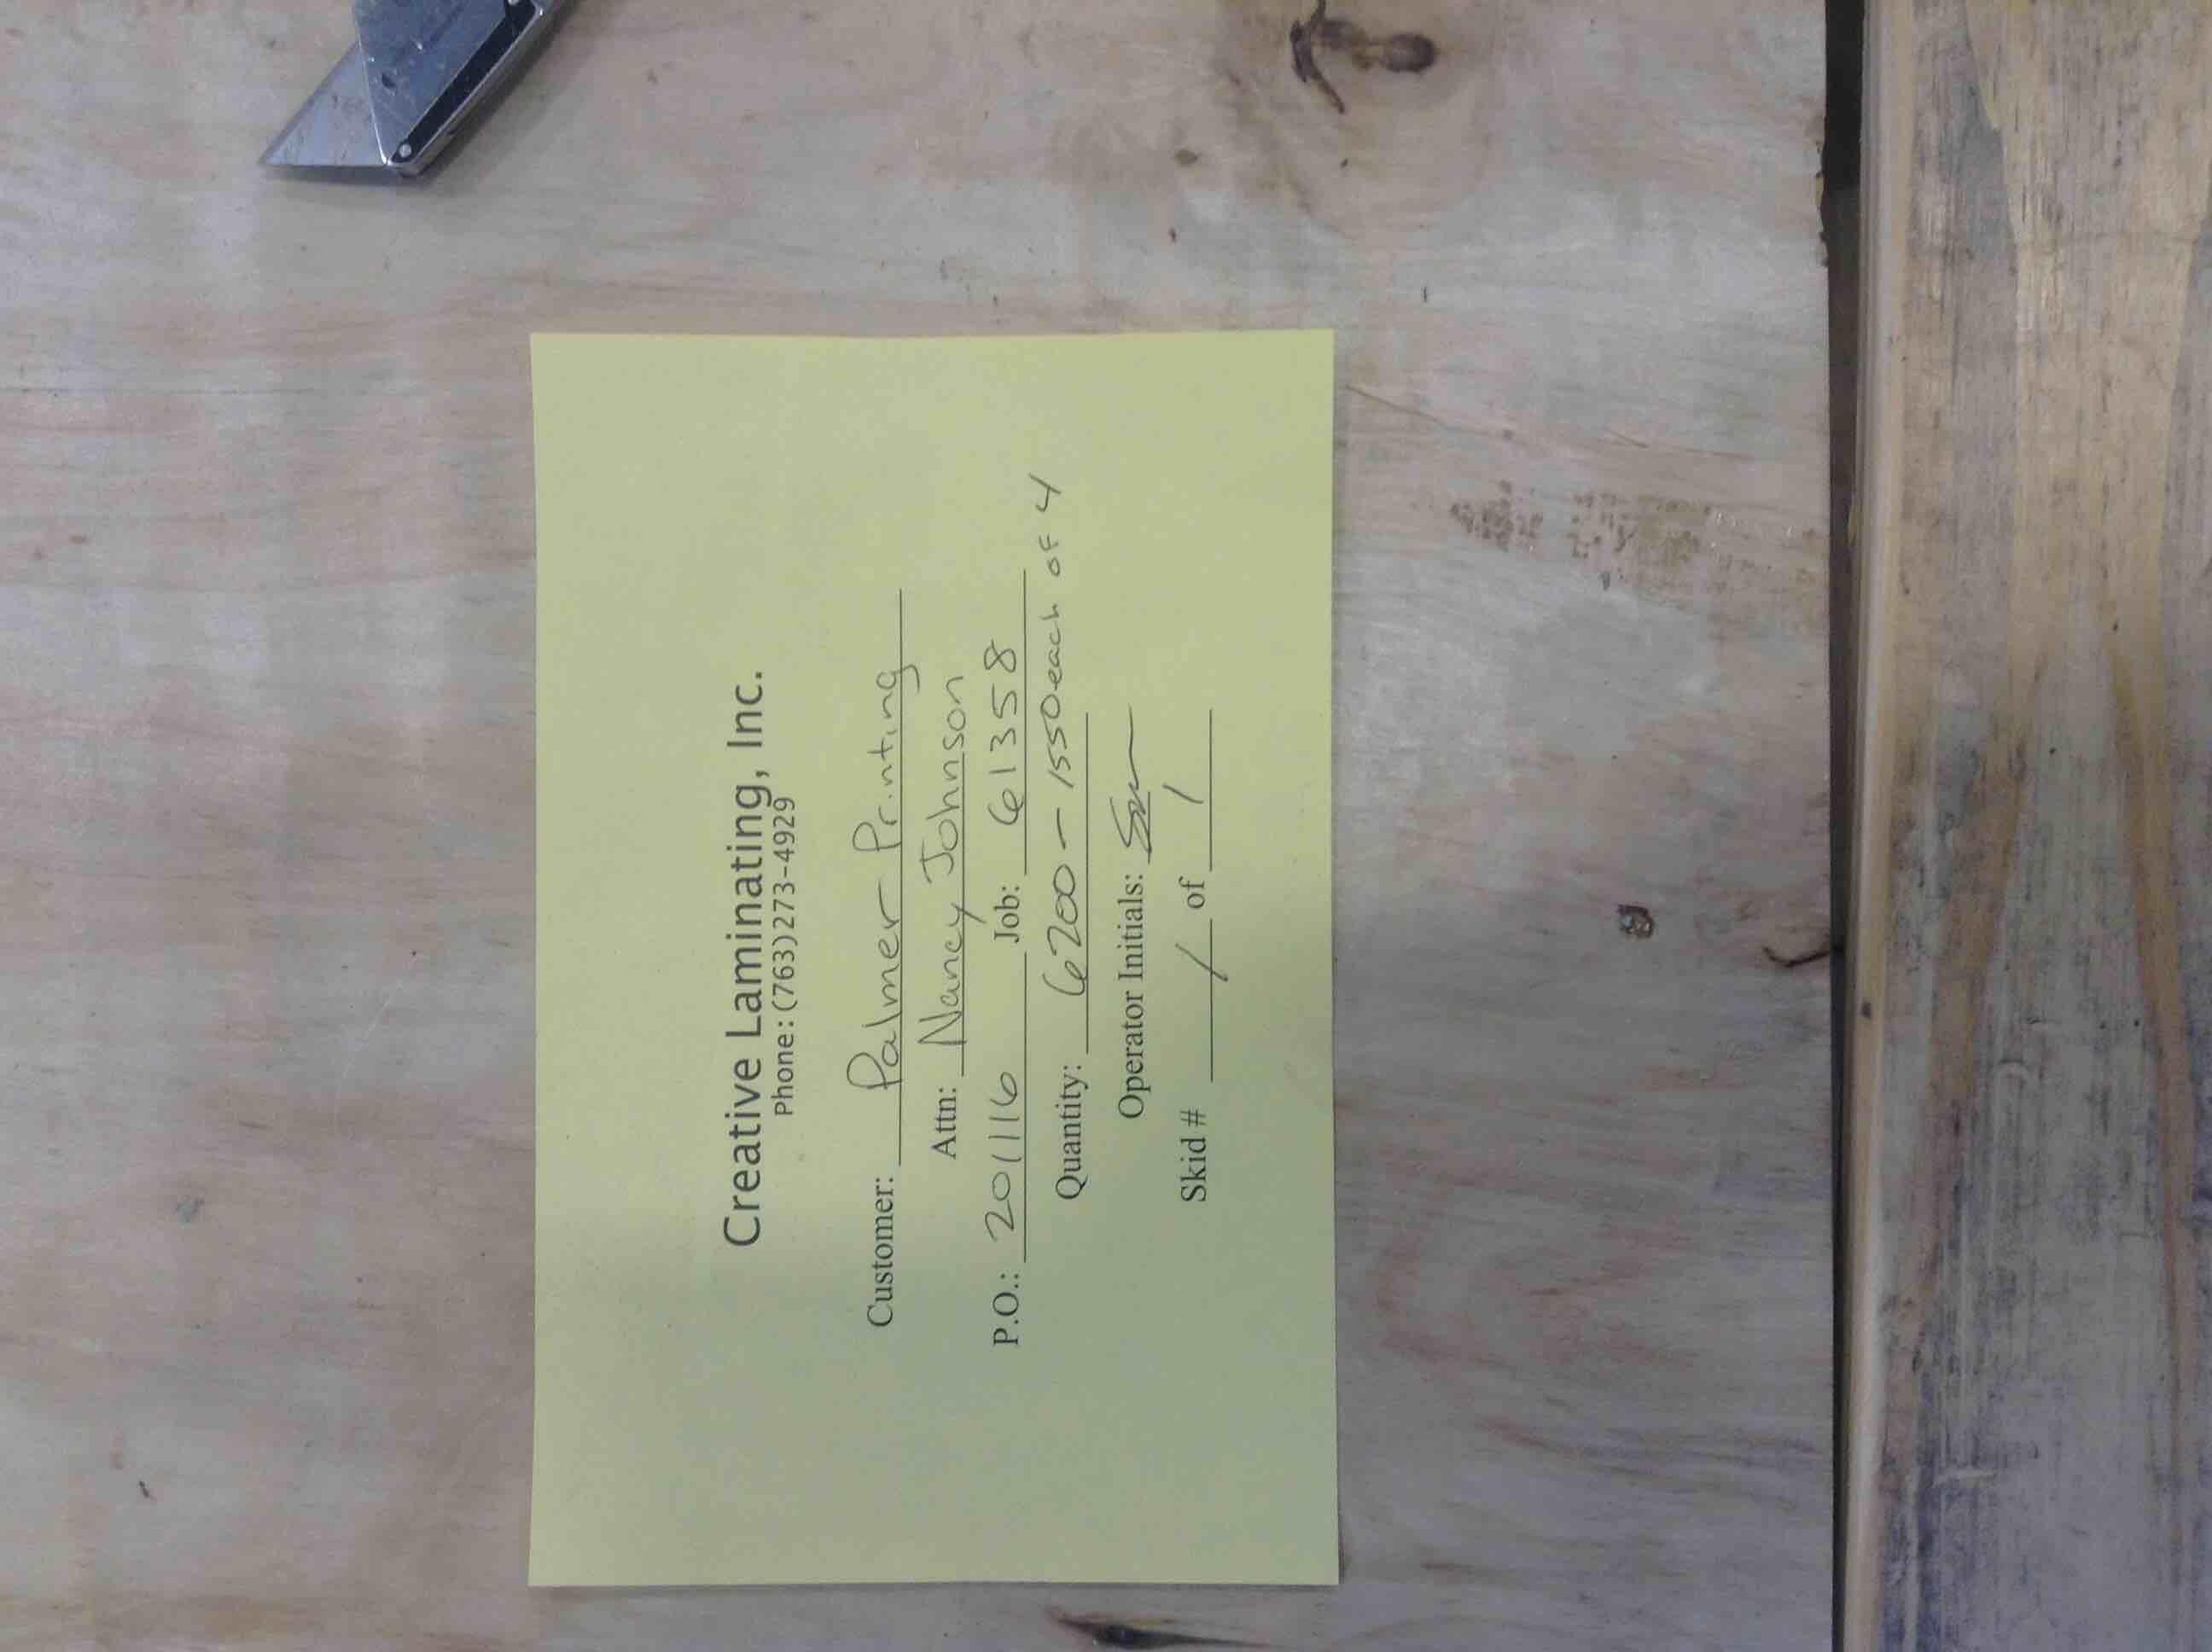 Creative Laminating, Inc.
Phone: (763)273-4929
Customer: Palmer Printing
Attn: Nancy Johnson
P.O.: 201116 Job: 61358
Quantity: 6200 - 1550 each of 4
Operator Initials:
Skid # 1 of 1